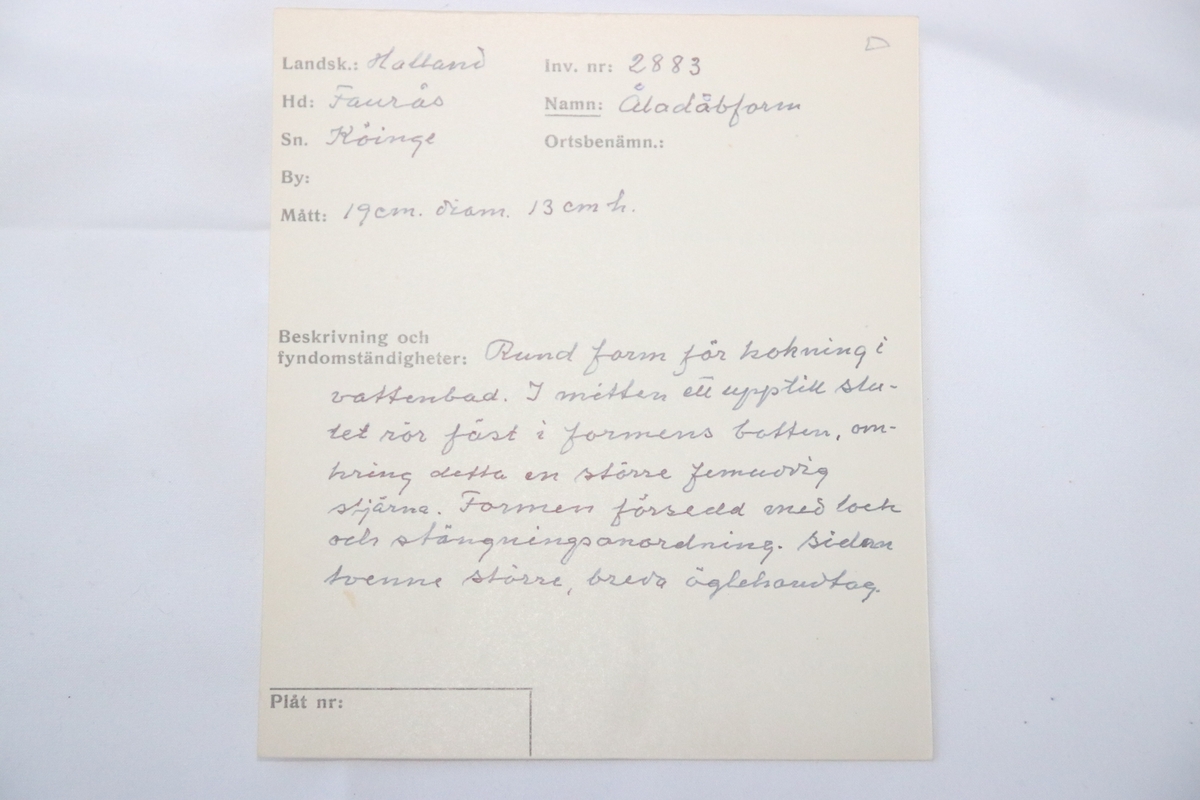 D
Landsk.: Halland Inv. nr: 2883
Hd: Faurås Namn: Åladåbform
Sn. Köinge Ortsbenämn.:
By:
Mått: 19 cm. diam. 13 cm h.
Beskrivning och
fyndomständigheter: Rund form för kokning i
vattenbad. I mitten ett upptill slu-
tet rör fäst i formens botten, om-
kring detta en större femuddig
stjärna. Formen försedd med lock
och stängningsanordning. Sidan
tvenne större, breda öglehandtag.
Plåt nr: